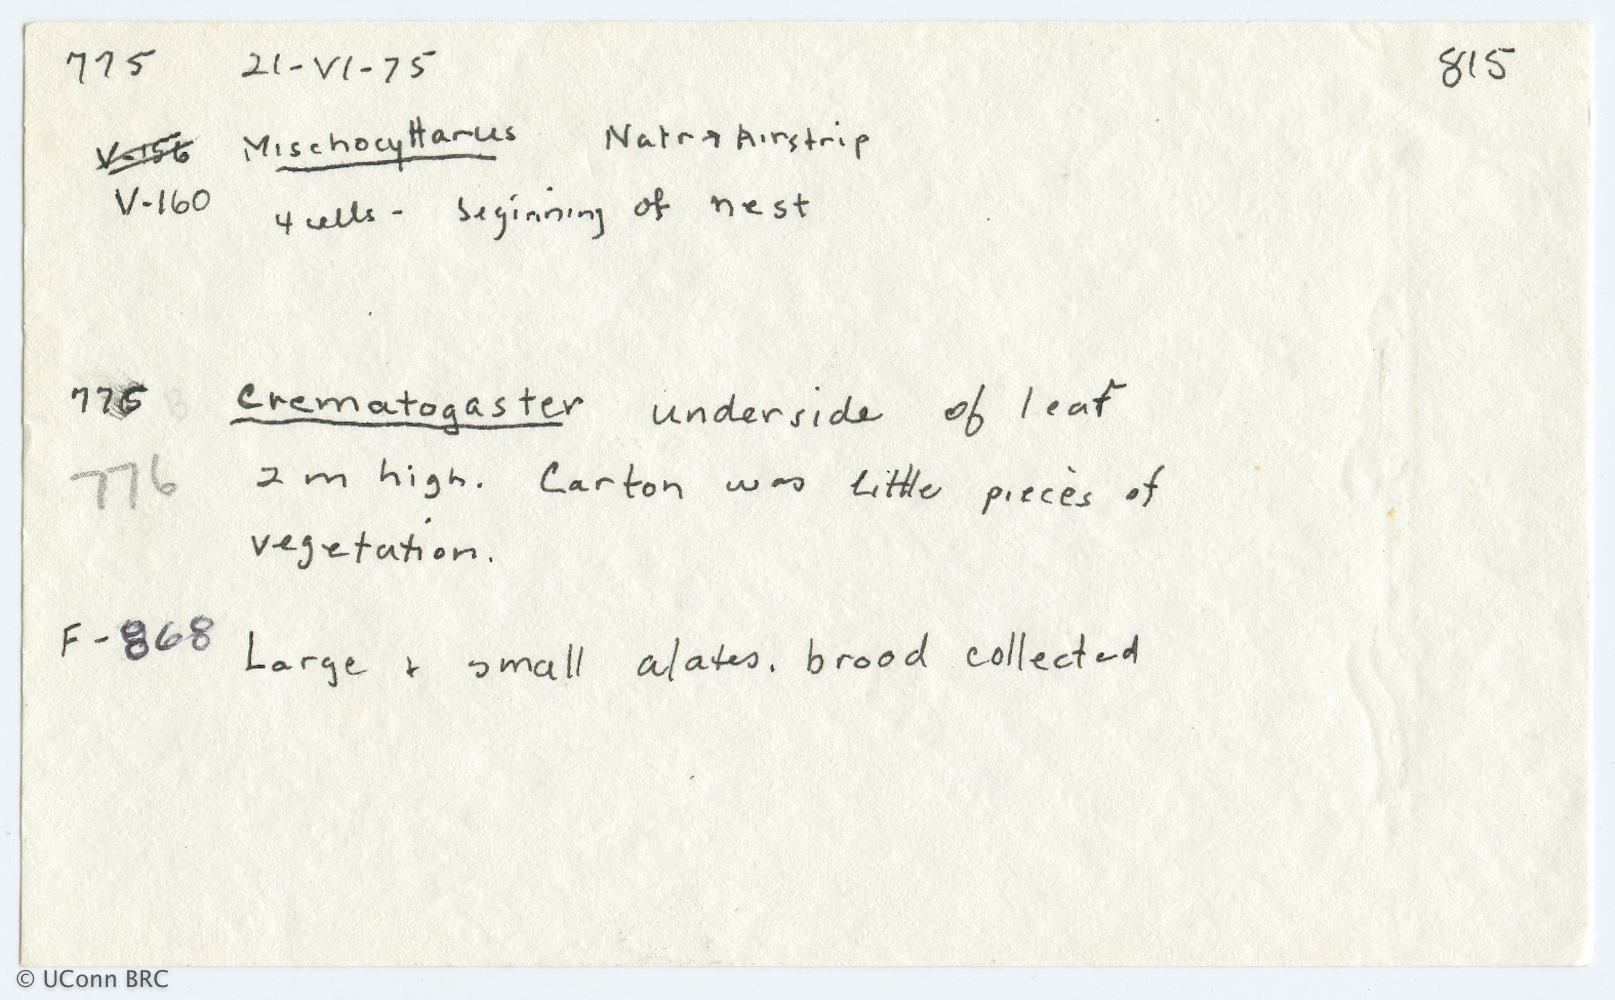 775 21-VI-75 815
V-156 Mischocyttarus Natr → Airstrip
V-160 4 cells - beginning of nest
775 B Crematogaster underside of leaf
776 2 m high. Carton was little pieces of
vegetation.
F-868 Large + small alates. brood collected
© UConn BRC